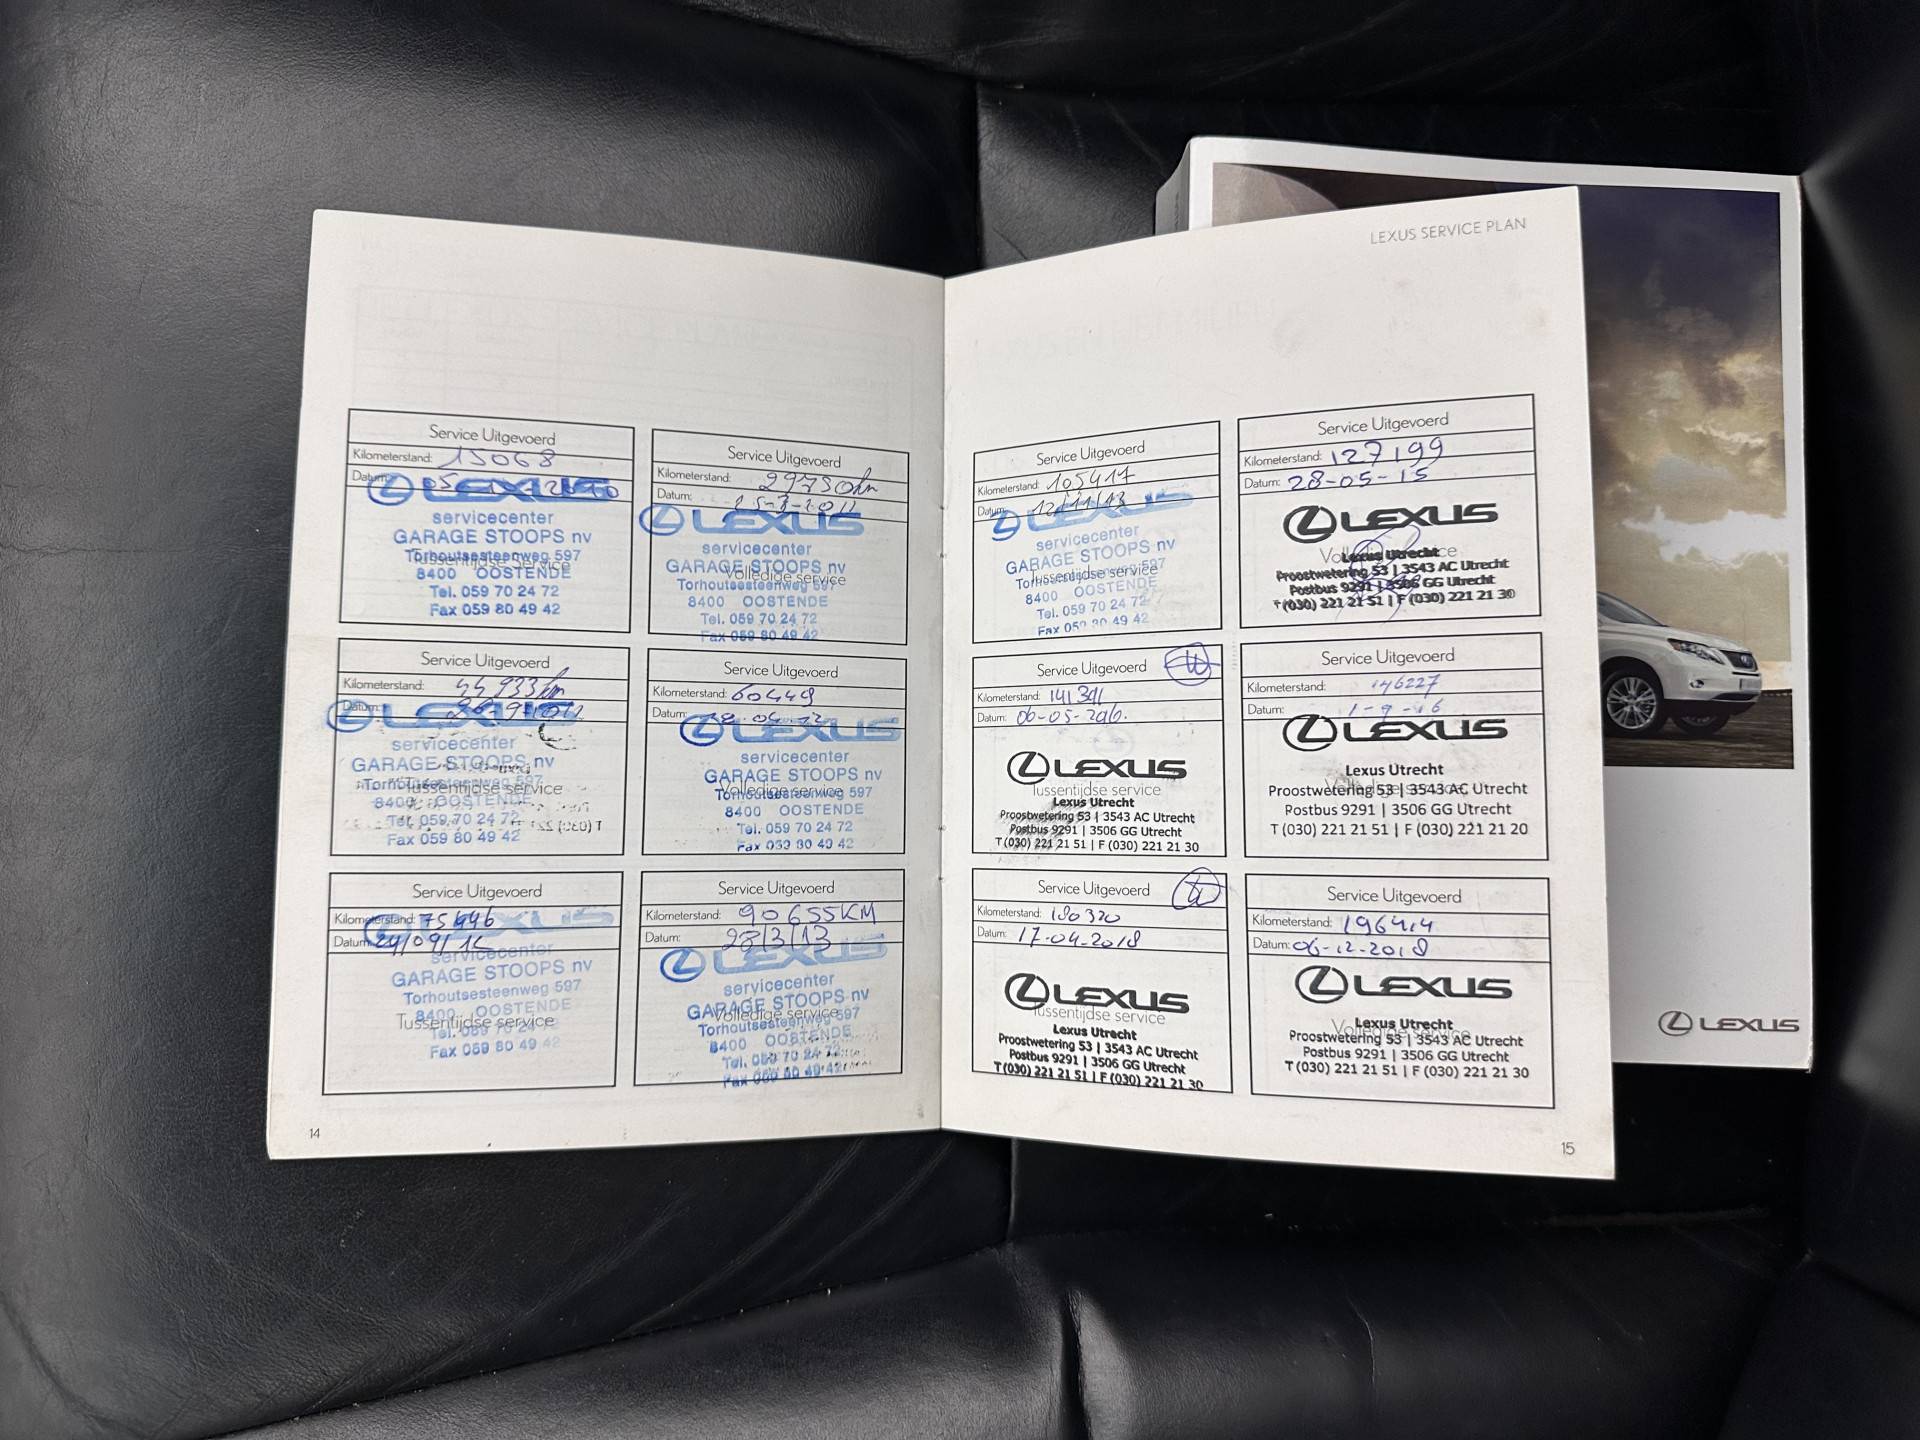 LEXUS SERVICE PLAN
Service Uitgevoerd
Kilometerstand: 15068
Datum:
LEXUS
servicecenter
GARAGE STOOPS nv
Torhoutsesteenweg 597
Tussentijdse service
8400 OOSTENDE
Tel. 059 70 24 72
Fax 059 80 49 42
Service Uitgevoerd
Kilometerstand: 29750km
Datum:
LEXUS
servicecenter
GARAGE STOOPS nv
Volledige service
Torhoutsesteenweg 597
8400 OOSTENDE
Tel. 059 70 24 72
Fax 059 80 49 42
Service Uitgevoerd
Kilometerstand:
Datum:
LEXUS
servicecenter
GARAGE STOOPS nv
Torhoutsesteenweg 597
Tussentijdse service
8400 OOSTENDE
Tel. 059 70 24 72
Fax 059 80 49 42
Service Uitgevoerd
Kilometerstand: 60449
Datum:
LEXUS
servicecenter
GARAGE STOOPS nv
Volledige service
Torhoutsesteenweg 597
8400 OOSTENDE
Tel. 059 70 24 72
Fax 059 80 49 42
Service Uitgevoerd
Kilometerstand:
Datum:
LEXUS
servicecenter
GARAGE STOOPS nv
Torhoutsesteenweg 597
8400 OOSTENDE
Tussentijdse service
Tel. 059 70 24 72
Fax 059 80 49 42
Service Uitgevoerd
Kilometerstand: 90655KM
Datum: 28/3/13
LEXUS
servicecenter
GARAGE STOOPS nv
Volledige service
Torhoutsesteenweg 597
8400 OOSTENDE
Tel. 059 70 24 72
Fax 059 80 49 42
14
Service Uitgevoerd
Kilometerstand: 105417
Datum: 12/11/13
LEXUS
servicecenter
GARAGE STOOPS nv
Tussentijdse service
Torhoutsesteenweg 597
8400 OOSTENDE
Tel. 059 70 24 72
Fax 059 80 49 42
Service Uitgevoerd
Kilometerstand: 127199
Datum: 28-05-15
LEXUS
Volledige service
Lexus Utrecht
Proostwetering 53 | 3543 AC Utrecht
Postbus 9291 | 3506 GG Utrecht
T (030) 221 21 51 | F (030) 221 21 30
Service Uitgevoerd
Kilometerstand: 141391
Datum: 06-05-2016.
LEXUS
Tussentijdse service
Lexus Utrecht
Proostwetering 53 | 3543 AC Utrecht
Postbus 9291 | 3506 GG Utrecht
T (030) 221 21 51 | F (030) 221 21 30
Service Uitgevoerd
Kilometerstand: 146227
Datum: 1-9-16
LEXUS
Lexus Utrecht
Volledige service
Proostwetering 53 | 3543 AC Utrecht
Postbus 9291 | 3506 GG Utrecht
T (030) 221 21 51 | F (030) 221 21 20
Service Uitgevoerd
Kilometerstand: 180320
Datum: 17-04-2018
LEXUS
Tussentijdse service
Lexus Utrecht
Proostwetering 53 | 3543 AC Utrecht
Postbus 9291 | 3506 GG Utrecht
T (030) 221 21 51 | F (030) 221 21 30
Service Uitgevoerd
Kilometerstand: 196414
Datum: 06-12-2018
LEXUS
Lexus Utrecht
Volledige service
Proostwetering 53 | 3543 AC Utrecht
Postbus 9291 | 3506 GG Utrecht
T (030) 221 21 51 | F (030) 221 21 30
15
LEXUS